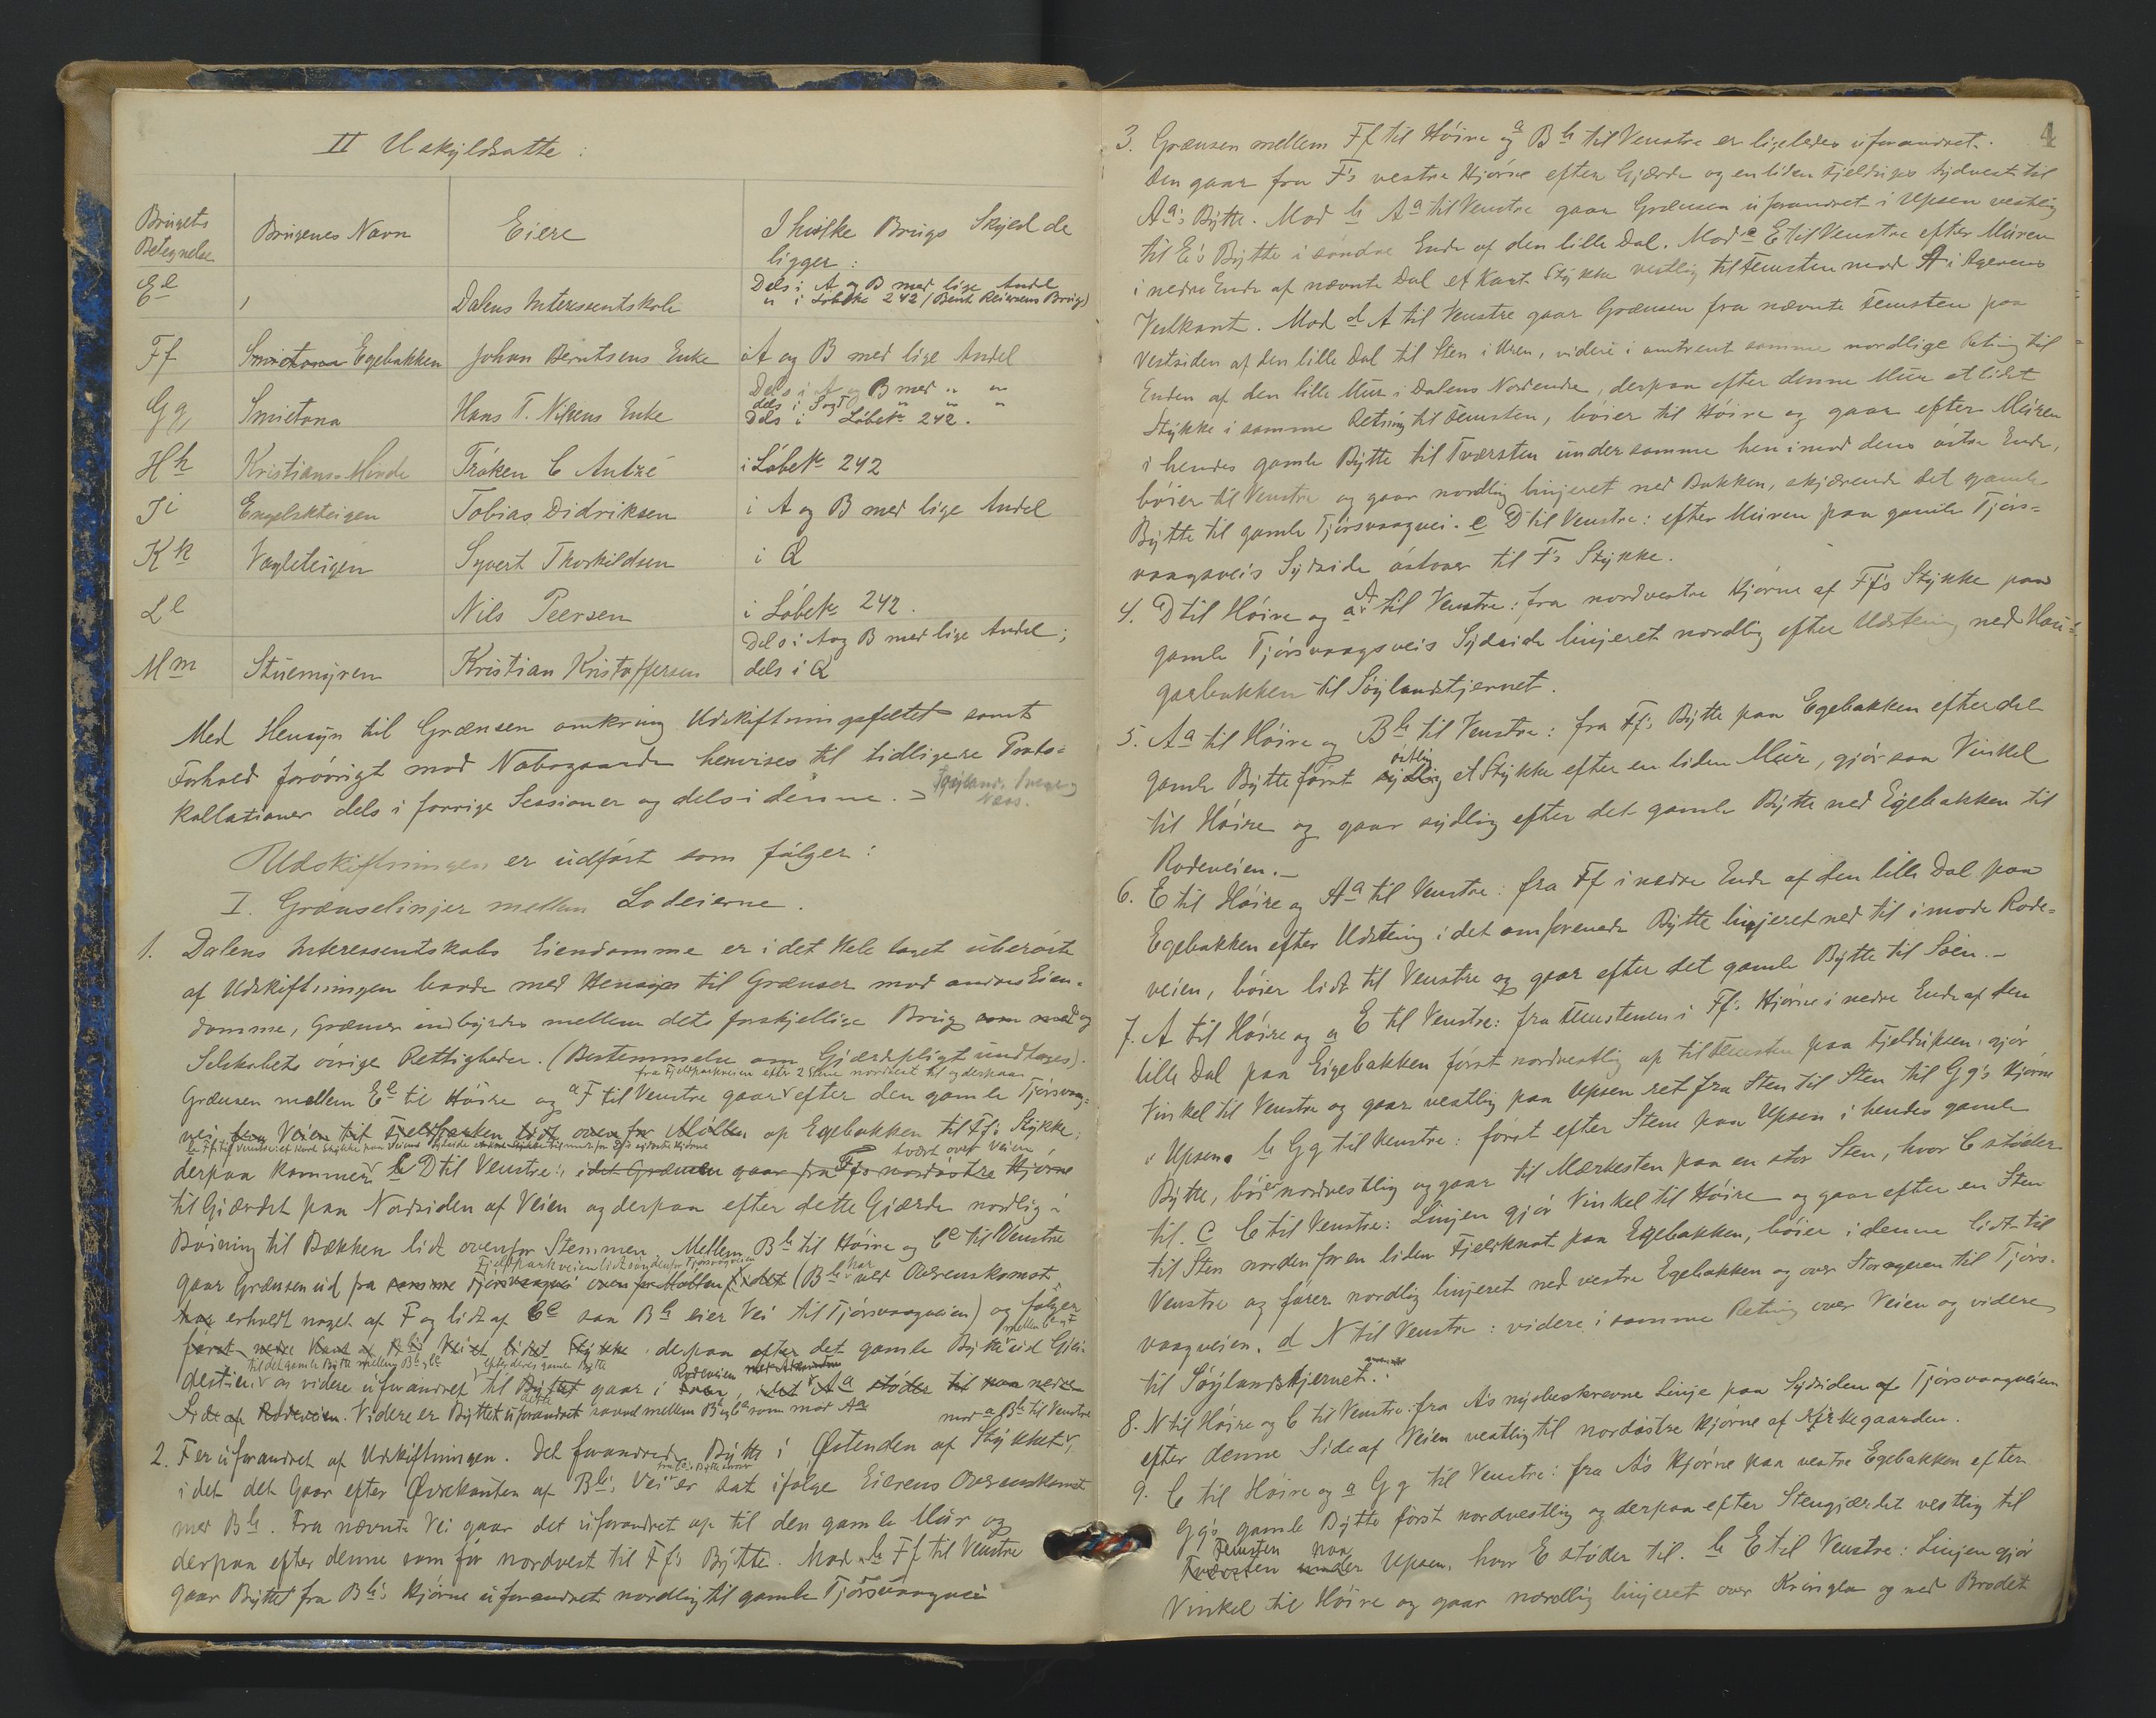 II Uskyldsatte:
Brugets Betegnelse | Brugenes Navn | Eiere | I hvilke Brugs Skyld de ligger:
Ee | Dalens Interessentskab | Dels i A og B med lige Andel
" i Løbek 242 (Bent Reiersens Brug)
Ff | Smietona Egebakken | Johan Berntsens Enke | i A og B med lige Andel
Gg | Smietona | Hans T. Nilsens Enke | Dels i A og B med " "
dels i " " "
Dels i Løbek 242.
Hh | Kristians-Minde | Frøken C Antzé | i Løbek 242
Ii | Engelskteigen | Tobias Didriksen | i A og B med lige Andel
Kk | Vagleteigen | Syvert Thorkildsen | i Q
Ll | Nils Peersen | i Løbek 242.
Mm | Stuemyren | Kristian Kristoffersen | Dels i A og B med lige Andel;
dels i Q
Med Hensyn til Grænsen omkring Udskiftningsfeltet samt
Forhold forøvrigt mod Nabogaarde henvises til tidligere Proto=
kollationer dels i forrige Sessioner og dels i denne.
Udskiftningen er udført som følger:
I. Grænselinjer mellem Lodeierne.
1. Dalens Interessentskabs Eiendomme er i det Hele taget uberørte
af Udskiftningen baade med Hensyn til Grænser mod andres Eien=
domme, Grænser indbyrdes mellem dets forskjellige Brug som med og
Selskabets øvrige Rettigheder. (Bestemmelse om Gjærdepligt undtages).
fra Fjeldparkveien efter 2 Stene nordvest til og derpaa
Grænsen mellem Ee til Høire og a F til Venstre gaar efter den gamle Tjørsvaag=
vei fra Veien til Fjeldparken lidt oven for Møllen op Egebakken til Ff's Stykke;
derpaa kommer b D til Venstre: idet Grænsen gaar fra Ff's nordøstre Hjørne tvært over Veien
til Gjærdet paa Nordsiden af Veien og derpaa efter dette Gjærde nordlig i
Bøining til Bækken lidt ovenfor Stemmen. Mellem Bb til Høire og Cc til Venstre
Fjeldparkveien lidt søndenfor Tjørsvaagveien
gaar Grænsen ud fra samme Tjørsvaagvei oven for Møllen, idet (Bb har ved Overenskomst
har erholdt noget af F og lidt af Cc saa Bb eier Vei til Tjørsvaagveien) og følger
først nedre Kant af Bb's Vei et lidet Stykke derpaa efter det gamle Bytte
til det gamle Bytte mellem Bb og Cc efter deres gamle Bytte
og videre uforandret til Byttet gaar i Rodeveien, idet Aa støder til paa nedre
Side af Rodeveien. Videre er Byttet uforandret saavel mellem B og C som mod Aa
2. F er uforandret af Udskiftningen. Det forandrede Bytte i Østenden af Stykket mod a Bb til Venstre
i det det gaar efter Øvrekanten af Bb's Vei er sat ifølge Eierens Overenskomst
med Bb. Fra nævnte Vei gaar det uforandret op til den gamle Mur og
derpaa efter denne som før nordvest til Ff's Bytte. Mod b Ff til Venstre
gaar Byttet fra Bb's Hjørne uforandret nordlig til gamle Tjørsvaagvei
4
3. Grænsen mellem Ff til Høire og a Bb til Venstre er ligeledes uforandret.
Den gaar fra F's vestre Hjørne efter Gjærde og en liden Fjeldups sydvest til
Aa's Bytte. Mod b Aa til Venstre gaar Grænsen uforandret i Upsen vestlig
til E's Bytte i søndre Ende af den lille Dal. Mod c E til Venstre efter Muren
i nedre Ende af nævnte Dal et kort Stykke vestlig til Femsten mod A i Agerens
Vestkant. Mod d A til Venstre gaar Grænsen fra nævnte Femsten paa
Vestsiden af den lille Dal til Sten i Uren, videre i omtrent samme nordlige Retning til
Enden af den lille Mur i Dalens Nordende, derpaa efter denne Mur et lidet
Stykke i samme Retning til Femsten, bøier til Høire og gaar efter Muren
i hendes gamle Bytte til Tværsten under samme hen imod dens østre Ende,
bøier til Venstre og gaar nordlig linjeret ned Bakken, skjærende det gamle
Bytte til gamle Tjørsvaagvei. e D til Venstre: efter Muren paa gamle Tjørs=
vaagsveis Sydside østover til F's Stykke.
4. D til Høire og a A til Venstre: fra nordvestre Hjørne af Ff's Stykke paa
gamle Tjørsvaagsveis Sydside linjeret nordlig efter Udstening ned Hau=
garbakken til Søylandstjernet.
5. Aa til Høire og Bb til Venstre: fra Ff's Bytte paa Egebakken efter det
gamle Bytte først sydlig østlig et Stykke efter en liden Mur, gjør saa Vinkel
til Høire og gaar sydlig efter det gamle Bytte ned Egebakken til
Rodeveien.
6. E til Høire og Aa til Venstre: fra Ff i nedre Ende af den lille Dal paa
Egebakken efter Udstening i det omforenede Bytte linjeret ned til imod Rode=
veien, bøier lidt til Venstre og gaar efter det gamle Bytte til Søen.
7. A til Høire og a E til Venstre: fra Femstenen i Ff's Hjørne i nedre Ende af den
lille Dal paa Egebakken først nordvestlig op til Femsten paa Fjeldupsen, gjør
Vinkel til Venstre og gaar vestlig paa Upsen ret fra Sten til Sten til Gg's Hjørne
i Upsen. b Gg til Venstre: først efter Stene paa Upsen i hendes gamle
Bytte, bøier nordvestlig og gaar til Mærkesten paa en stor Sten, hvor C støder
til. c C til Venstre: Linjen gjør Vinkel til Høire og gaar efter en Sten
til Sten norden for en liden Fjeldknat paa Egebakken, bøier i denne lidt til
Venstre og fører nordlig linjeret ned vestre Egebakken og over Storageren til Tjørs=
vaagveien. d N til Venstre: videre i samme Retning over Veien og videre
til Søylandstjernet.
8. N til Høire og C til Venstre: fra A's nybeskrevne Linje paa Sydsiden af Tjørsvaagveien
efter denne Side af Veien vestlig til nordøstre Hjørne af Kirkegaarden.
9. C til Høire og a Gg til Venstre: fra A's Hjørne paa vestre Egebakken efter
Gg's gamle Bytte først nordvestlig og derpaa efter Stengjærdet vestlig til
Femsten paa
Tværsten under Upsen, hvor E støder til. b E til Venstre: Linjen gjør
Vinkel til Høire og gaar nordlig linjeret over Kringla og ned Brodet